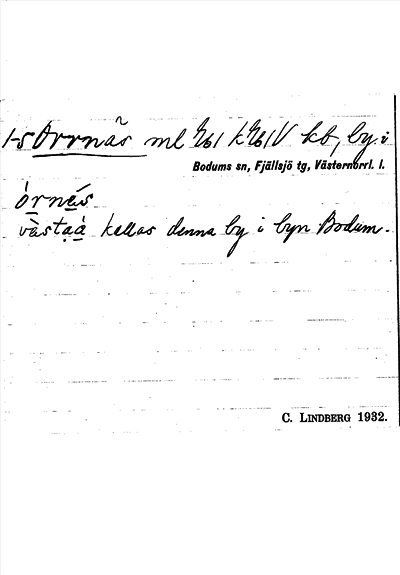 1-5 Orrnäs ml kb, by i
Bodums sn, Fjällsjö tg, Västernorrl. l.
órnés
vàstaá kallas denna by i byn Bodum.
C. LINDBERG 1932.